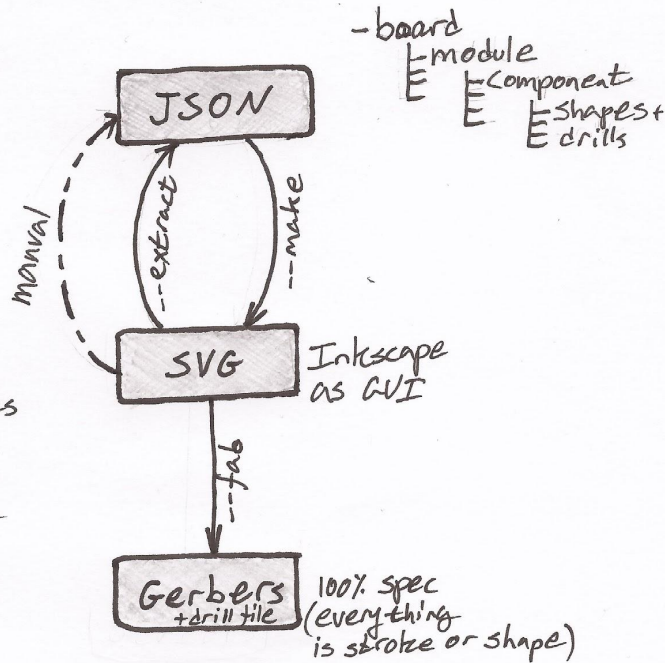 - board
module
Component
shapes+
drills
JSON
manual
--extract
--make
SVG
Inkscape
as GUI
s
--fab
Gerbers
+drill file
100% spec
(everything
is stroke or shape)